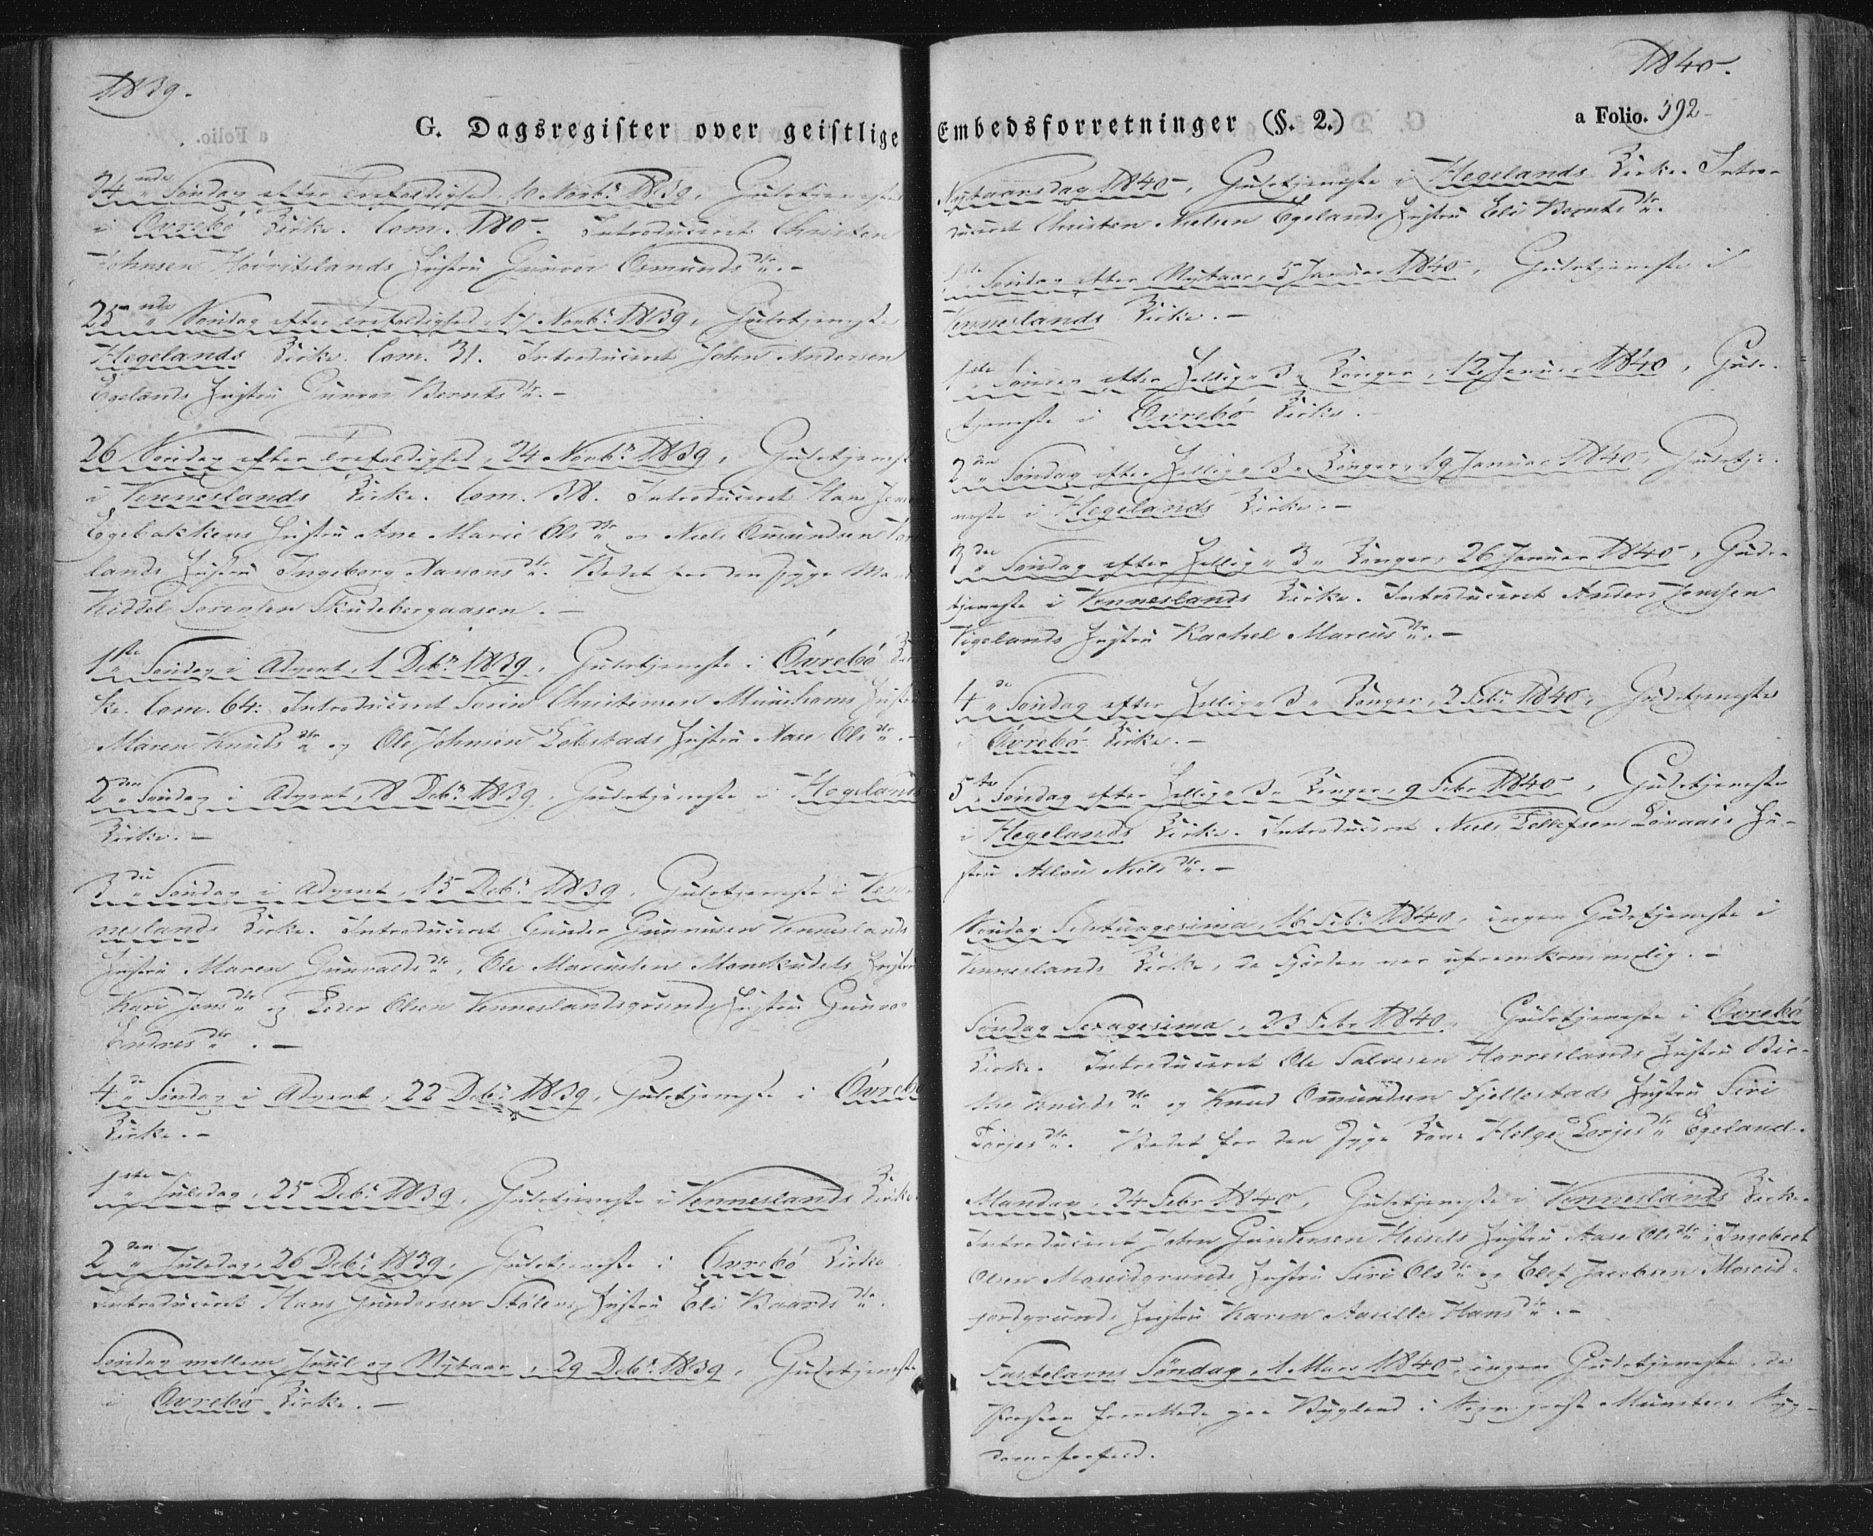 1839.
G. Dagsregister over geistlige
24 nde Søndag efter Trefoldighed, 10 Novbr 1839, Gudstjeneste
i Øvrebø Kirke. Com. 180. Introduceret Christen
Johnsen Hovritslands Hustru Gunvor Osmundsdtr. –
25 nde Søndag efter Trefoldighed, 17 Novbr 1839, Gudstjeneste
Hegelands Kirke. Com. 31. Introduceret John Andersen
Egelands Hustru Gunvor Berntsdtr. –
26 Søndag efter Trefoldighed, 24 Novbr 1839, Gudstjeneste
i Venneslands Kirke. Com. 38. Introduceret Hans
Egebakkens Hustru Ane Marie Olsdtr og Niels Omundsen
lands Hustru Ingeborg Aanonsdtr. Bedet for den syge
Kiddel Sørensen Skudebergaasen. –
1ste Søndag i Advent, 1 Decbr 1839, Gudstjeneste i Øvrebø Kir
ke. Com. 64. Introduceret Soren Christensen Hustru
Maren Knudsdtr og Ole Johnsen Hustru Aase Olsdtr. –
2den Søndag i Advent, 8 Decbr 1839, Gudstjeneste i Hegelands
Kirke. –
3die Søndag i Advent, 15 Decbr 1839, Gudstjeneste i Ven
neslands Kirke. Introduceret Gunder Gunnusen Venneslands
Hustru Maren Gunvaldsdtr, Ole Hustru
Kari Jensdtr og Peder Olsen Venneslandsgrunds Hustru Gunvor
Endresdtr. –
4de Søndag i Advent, 22 Decbr 1839, Gudstjeneste i Øvrebø
Kirke. –
1ste Juledag, 25 Decbr 1839, Gudstjeneste i Venneslands Kirke
2den Juledag, 26 Decbr 1839, Gudstjeneste i Øvrebø Kirke
Introduceret Hans Gundersen Stølens Hustru Eli Baardsdtr.
Søndag mellem Juul og Nytaar, 29 Decbr 1839, Gudstjeneste
i Øvrebø Kirke. –
1840.
Embedsforretninger (§. 2.) a Folio. 392
Nytaarsdag 1840, Gudstjeneste i Hegelands Kirke. Intro-
duceret Christen Nielsen Egelands Hustru Eli Berntsdtr.
1ste Søndag efter Nytaar, 5 Januar 1840, Gudstjeneste i
Venneslands Kirke. –
1ste Søndag efter Hellig 3 Konger, 12 Januar 1840, Guds-
tjeneste i Øvrebø Kirke.
2den Søndag efter Hellig 3 Konger, 19 Januar 1840, Gudstje-
neste i Hegelands Kirke. –
3die Søndag efter Hellig 3 Konger, 26 Januar 1840, Guds-
tjeneste i Venneslands Kirke. Introduceret Anders Jensen
Vigelands Hustru Rachel Marcusdtr. –
4de Søndag efter Hellig 3 Konger, 2 Febr 1840, Gudstjeneste
i Øvrebø Kirke. –
5te Søndag efter Hellig 3 Konger, 9 Febr 1840, Gudstjeneste
i Hegelands Kirke. Introduceret Niels Tellefsen Hu-
stru Nielsdtr. –
Søndag Septuagesima, 16 Febr 1840, ingen Gudstjeneste i
Venneslands Kirke, da Fjorden var ufremkommelig. –
Søndag Sexagesima, 23 Febr 1840, Gudstjeneste i Øvrebø
Kirke. Introduceret Ole Salvesen Horreslands Hustru Bir-
the Knudsdtr og Knud Omundsen Fjellestads Hustru Siri
Torjesdtr. Bedet for den syge Kone Helge Torjesdtr Egeland.
Mandag, 24 Febr 1840, Gudstjeneste i Venneslands Kirke.
Introduceret John Gundersen Heisels Hustru Aase Olsdtr, Ingebret
Olsen Moseidgrunds Hustru Siri Olsdtr og Elef Jacobsen Moseid-
jordgrunds Hustru Karen Hansdtr. –
Fastelavns Søndag, 1 Mars 1840, ingen Gudstjeneste, da
Præsten forrettede paa Bygland i Sognepræst Munsters Syg-
domsforfald.